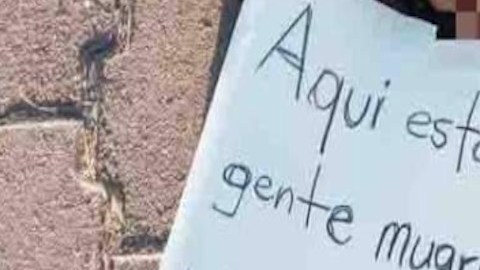 Aqui est
gente mugr